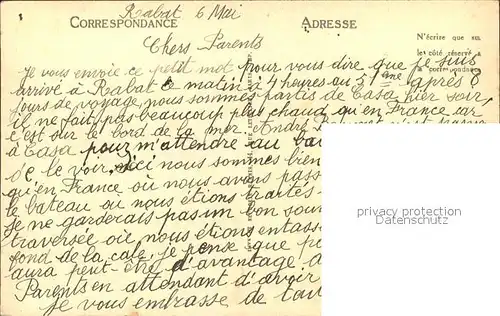 Rabat 6 Mai
CORRESPONDANCE
ADRESSE
N'écrire que sur
le côté réservé à
la correspondance
Chers Parents
Je vous envoie ce petit mot pour vous dire que je suis
arrivé à Rabat ce matin à 4 heures au 51 ème après 8
jours de voyage nous sommes partis de Casa hier soir,
il ne fait pas beaucoup plus chaud qu'en France car
c'est sur le bord de la mer. André
à Casa pour m'attendre au
de le voir, ici nous sommes bien
qu'en France où nous avons pass
le bateau où nous étions traités
Je ne garderais pas un bon souv
traversée où nous étions entass
fond de la cale, je pense que
aura peut-être d'avantage
Parents en attendant d'avoir
je vous embrasse de tout
privacy protection
www.delcampe.net